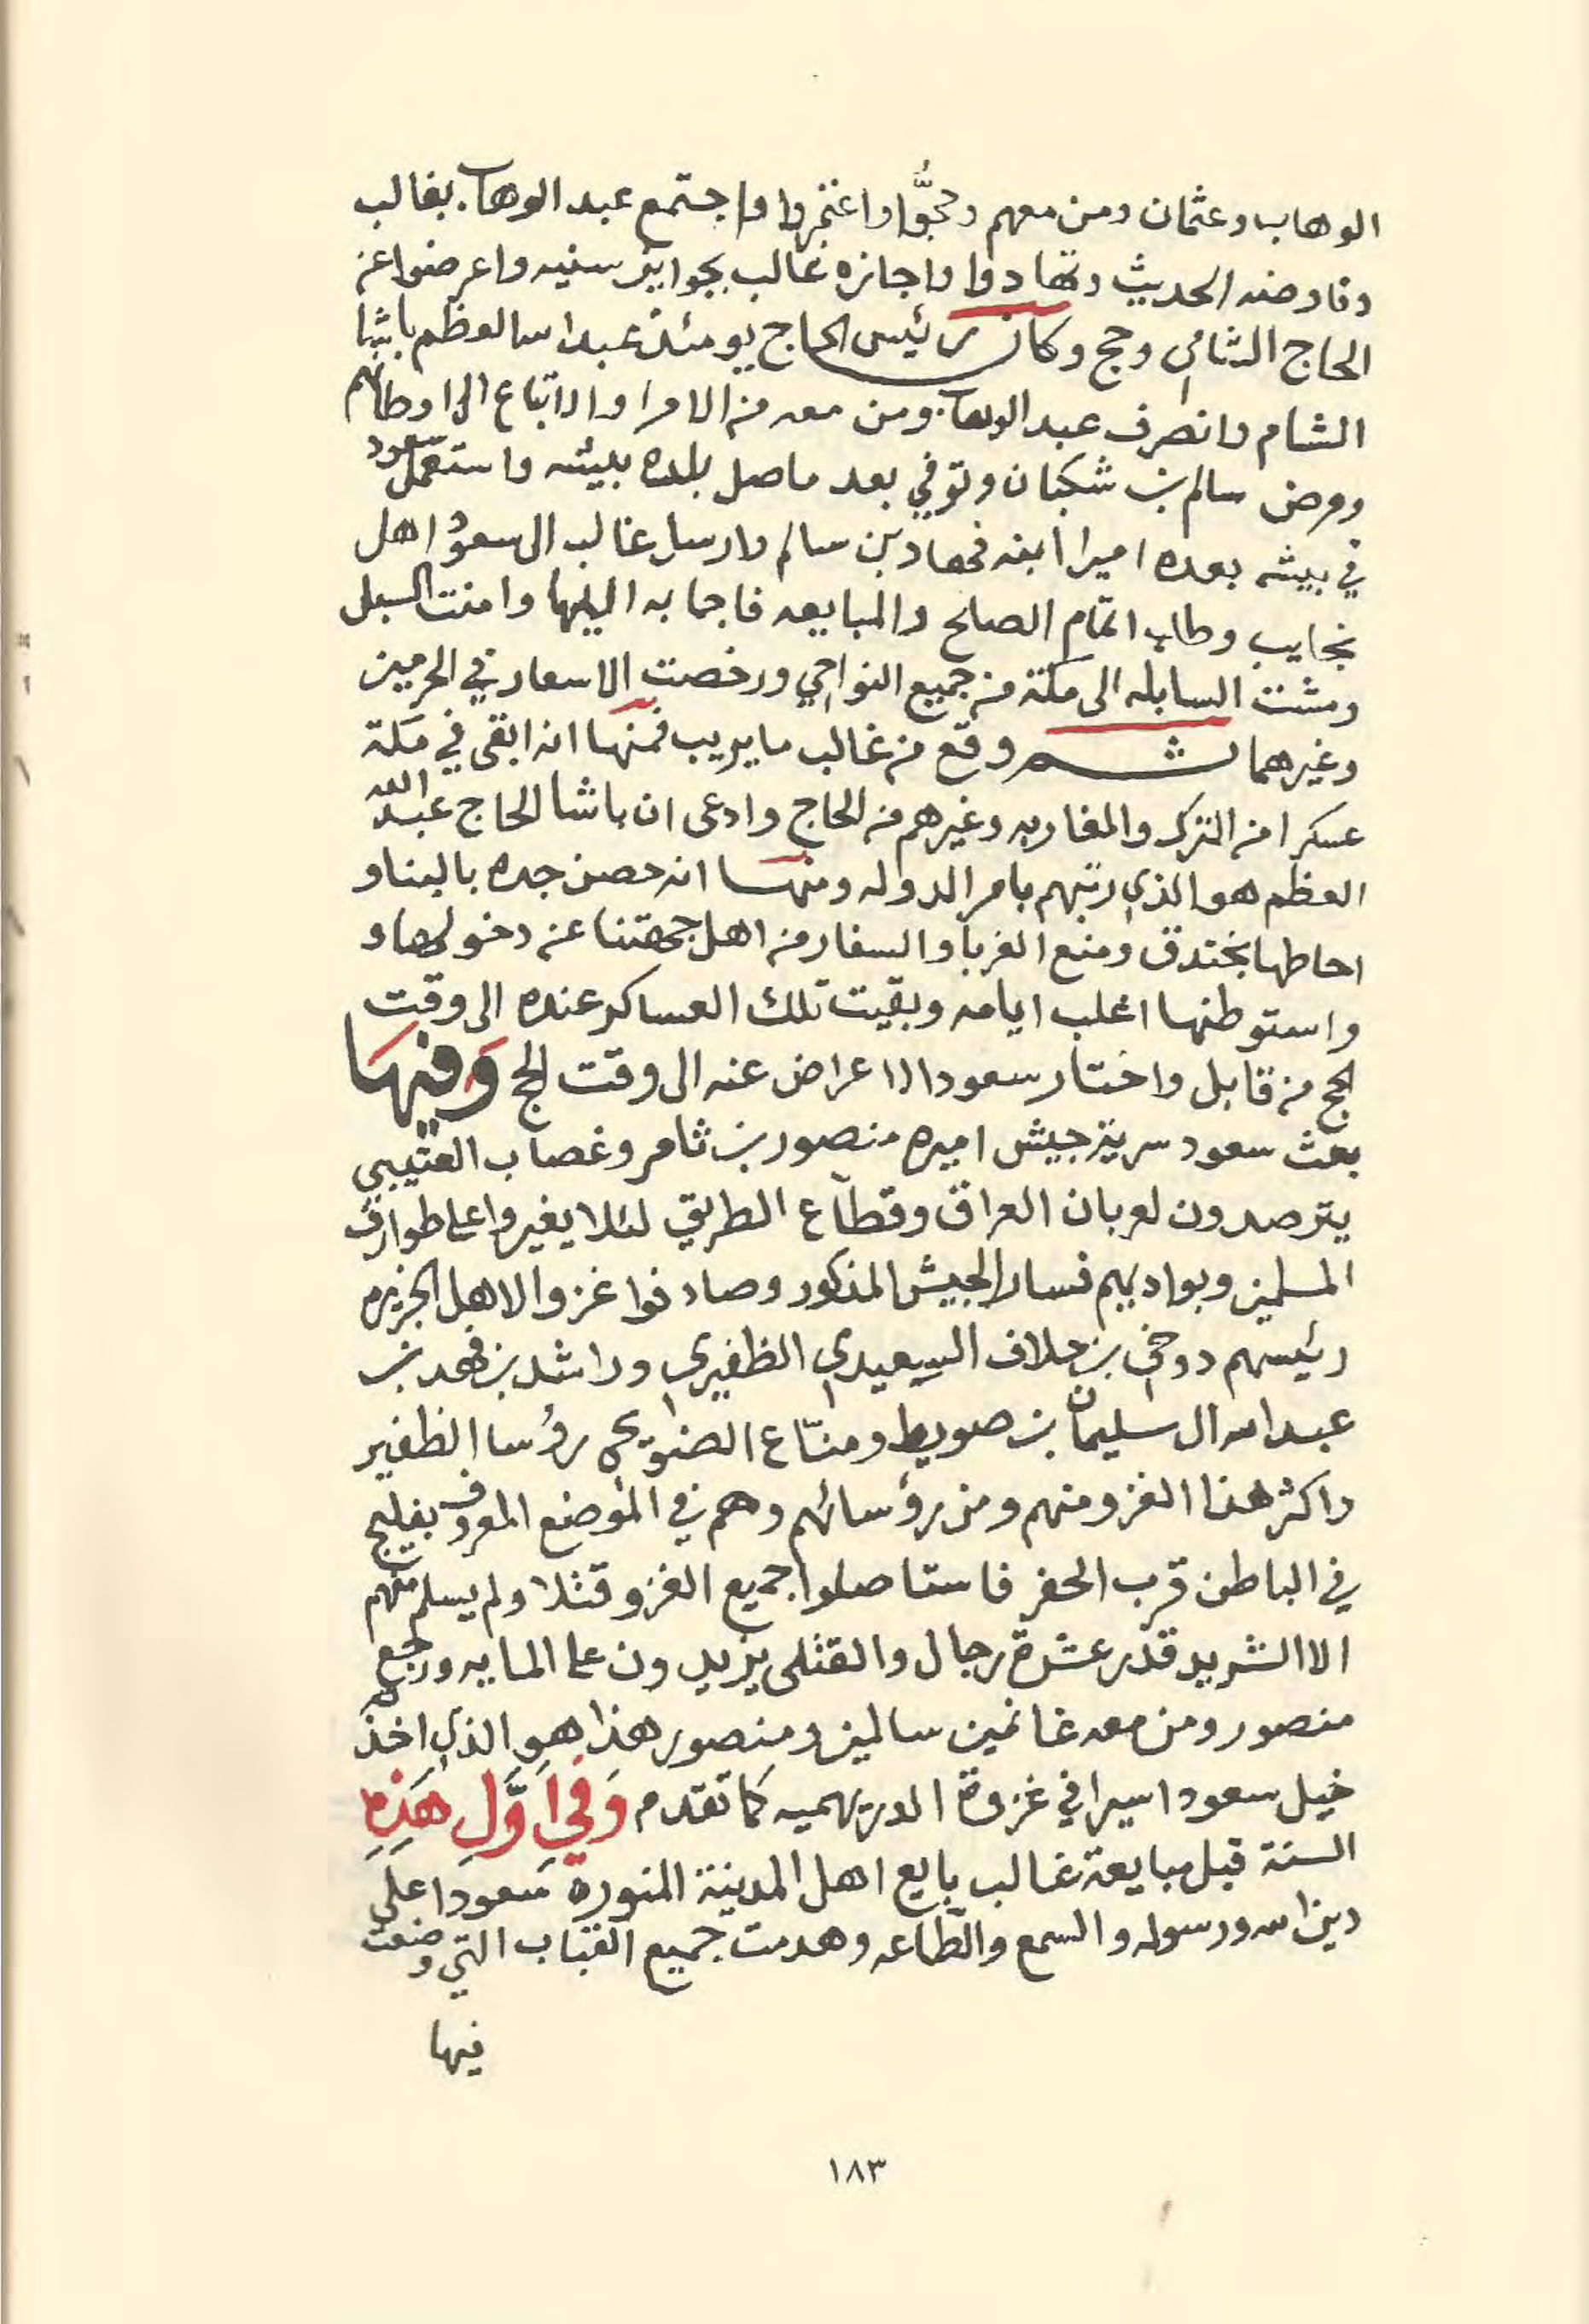 الوهاب وعثمان ومن معهم وحجُّوا واعتمروا واجتمع عبد الوهاب بغالب
وفاوضه الحديث وتهادوا واجازه غالب بجوايز سنيه واعرضوا عن
الحاج الشامي وحج وكان رئيس الحاج يومئذ عبد الله العظم باشا
الشام وانصرف عبد الوهاب ومن معه من الامرا والاتباع الى اوطانهم
ومرض سالم بن شكبان وتوفي بعد ماصل بلده بيشه واستعمل سعود
في بيشه بعده اميرا ابنه فهاد بن سالم وارسل غالب الى سعود اهل
نجايب وطلب اتمام الصلح والمبايعه فاجابه اليها وامنت السبل
ومشت السابله الى مكة من جميع النواحي ورخصت الاسعار في الحرمين
وغيرهما ثم وقع من غالب ما يريب فمنها انه ابقى في مكة
عسكرا من الترك والمغاربه وغيرهم من الحاج وادعى ان باشا الحاج عبد الله
العظم هو الذي رتبهم بامر الدوله ومنها انه حصن جده بالبنا و
احاطها بخندق ومنع الغربا والسفار من اهل جهتنا عن دخولها و
واستوطنها اغلب ايامه وبقيت تلك العساكر عنده الى وقت
الحج من قابل واختار سعود الاعراض عنه الى وقت الحج وَفيهَا
بعث سعود سرية جيش اميره منصور بن ثامر وغصاب العتيبي
يترصدون لعربان العراق وقطاع الطريق لئلا يغيروا على طوارف
المسلمين وبواديهم فسار الجيش المذكور وصادفوا غزوا لاهل الجزيره
رئيسهم دوخي بن حلاف السعيدي الظفيري وراشد بن فهد بن
عبد الله ال سليمان بن صويط ومنّاع الضويحي رؤسا الظفير
واكثر هذا الغزو منهم ومن رؤسائهم وهم في الموضع المعروف بفليج
في الباطن قرب الحفر فاستاصلوا جميع الغزو قتلا ولم يسلم منهم
الا الشريد قدر عشرة رجال والقتلى يزيدون على المايه ورجع
منصور ومن معه غانمين سالمين ومنصور هذا هو الذي اخذته
خيل سعود اسيرا في غزوة الدريهميه كما تقدم وَفي اَوَّلِ هَذِهِ
السنة قبل مبايعة غالب بايع اهل المدينة المنوره سعودا على
دين الله ورسوله والسمع والطاعه وهدمت جميع القباب التي وضعت
فيها
١٨٣